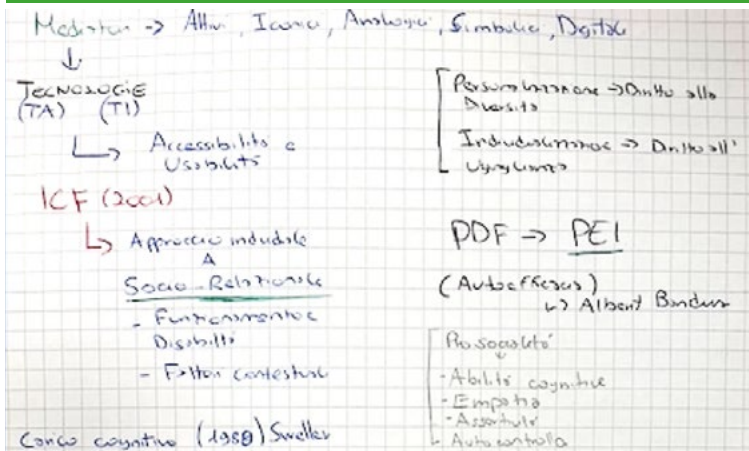 Mediatori -> Attivi, Iconici, Analogici, Simbolici, Digitali
TECNOLOGIE
(TA) (TI)
Accessibilità e
Usabilità
ICF (2001)
Approccio individuale
A
Socio-Relazionale
- Funzionamento e
Disabilità
- Fattori contestuali
Carico cognitivo (1988) Sweller
Personalizzazione -> Diritto alla
Diversità
Individualizzazione -> Diritto all'
Uguaglianza
PDF -> PEI
(Autoefficacia)
Albert Bandura
Prosocialità
- Abilità cognitive
- Empatia
- Assertività
- Autocontrollo